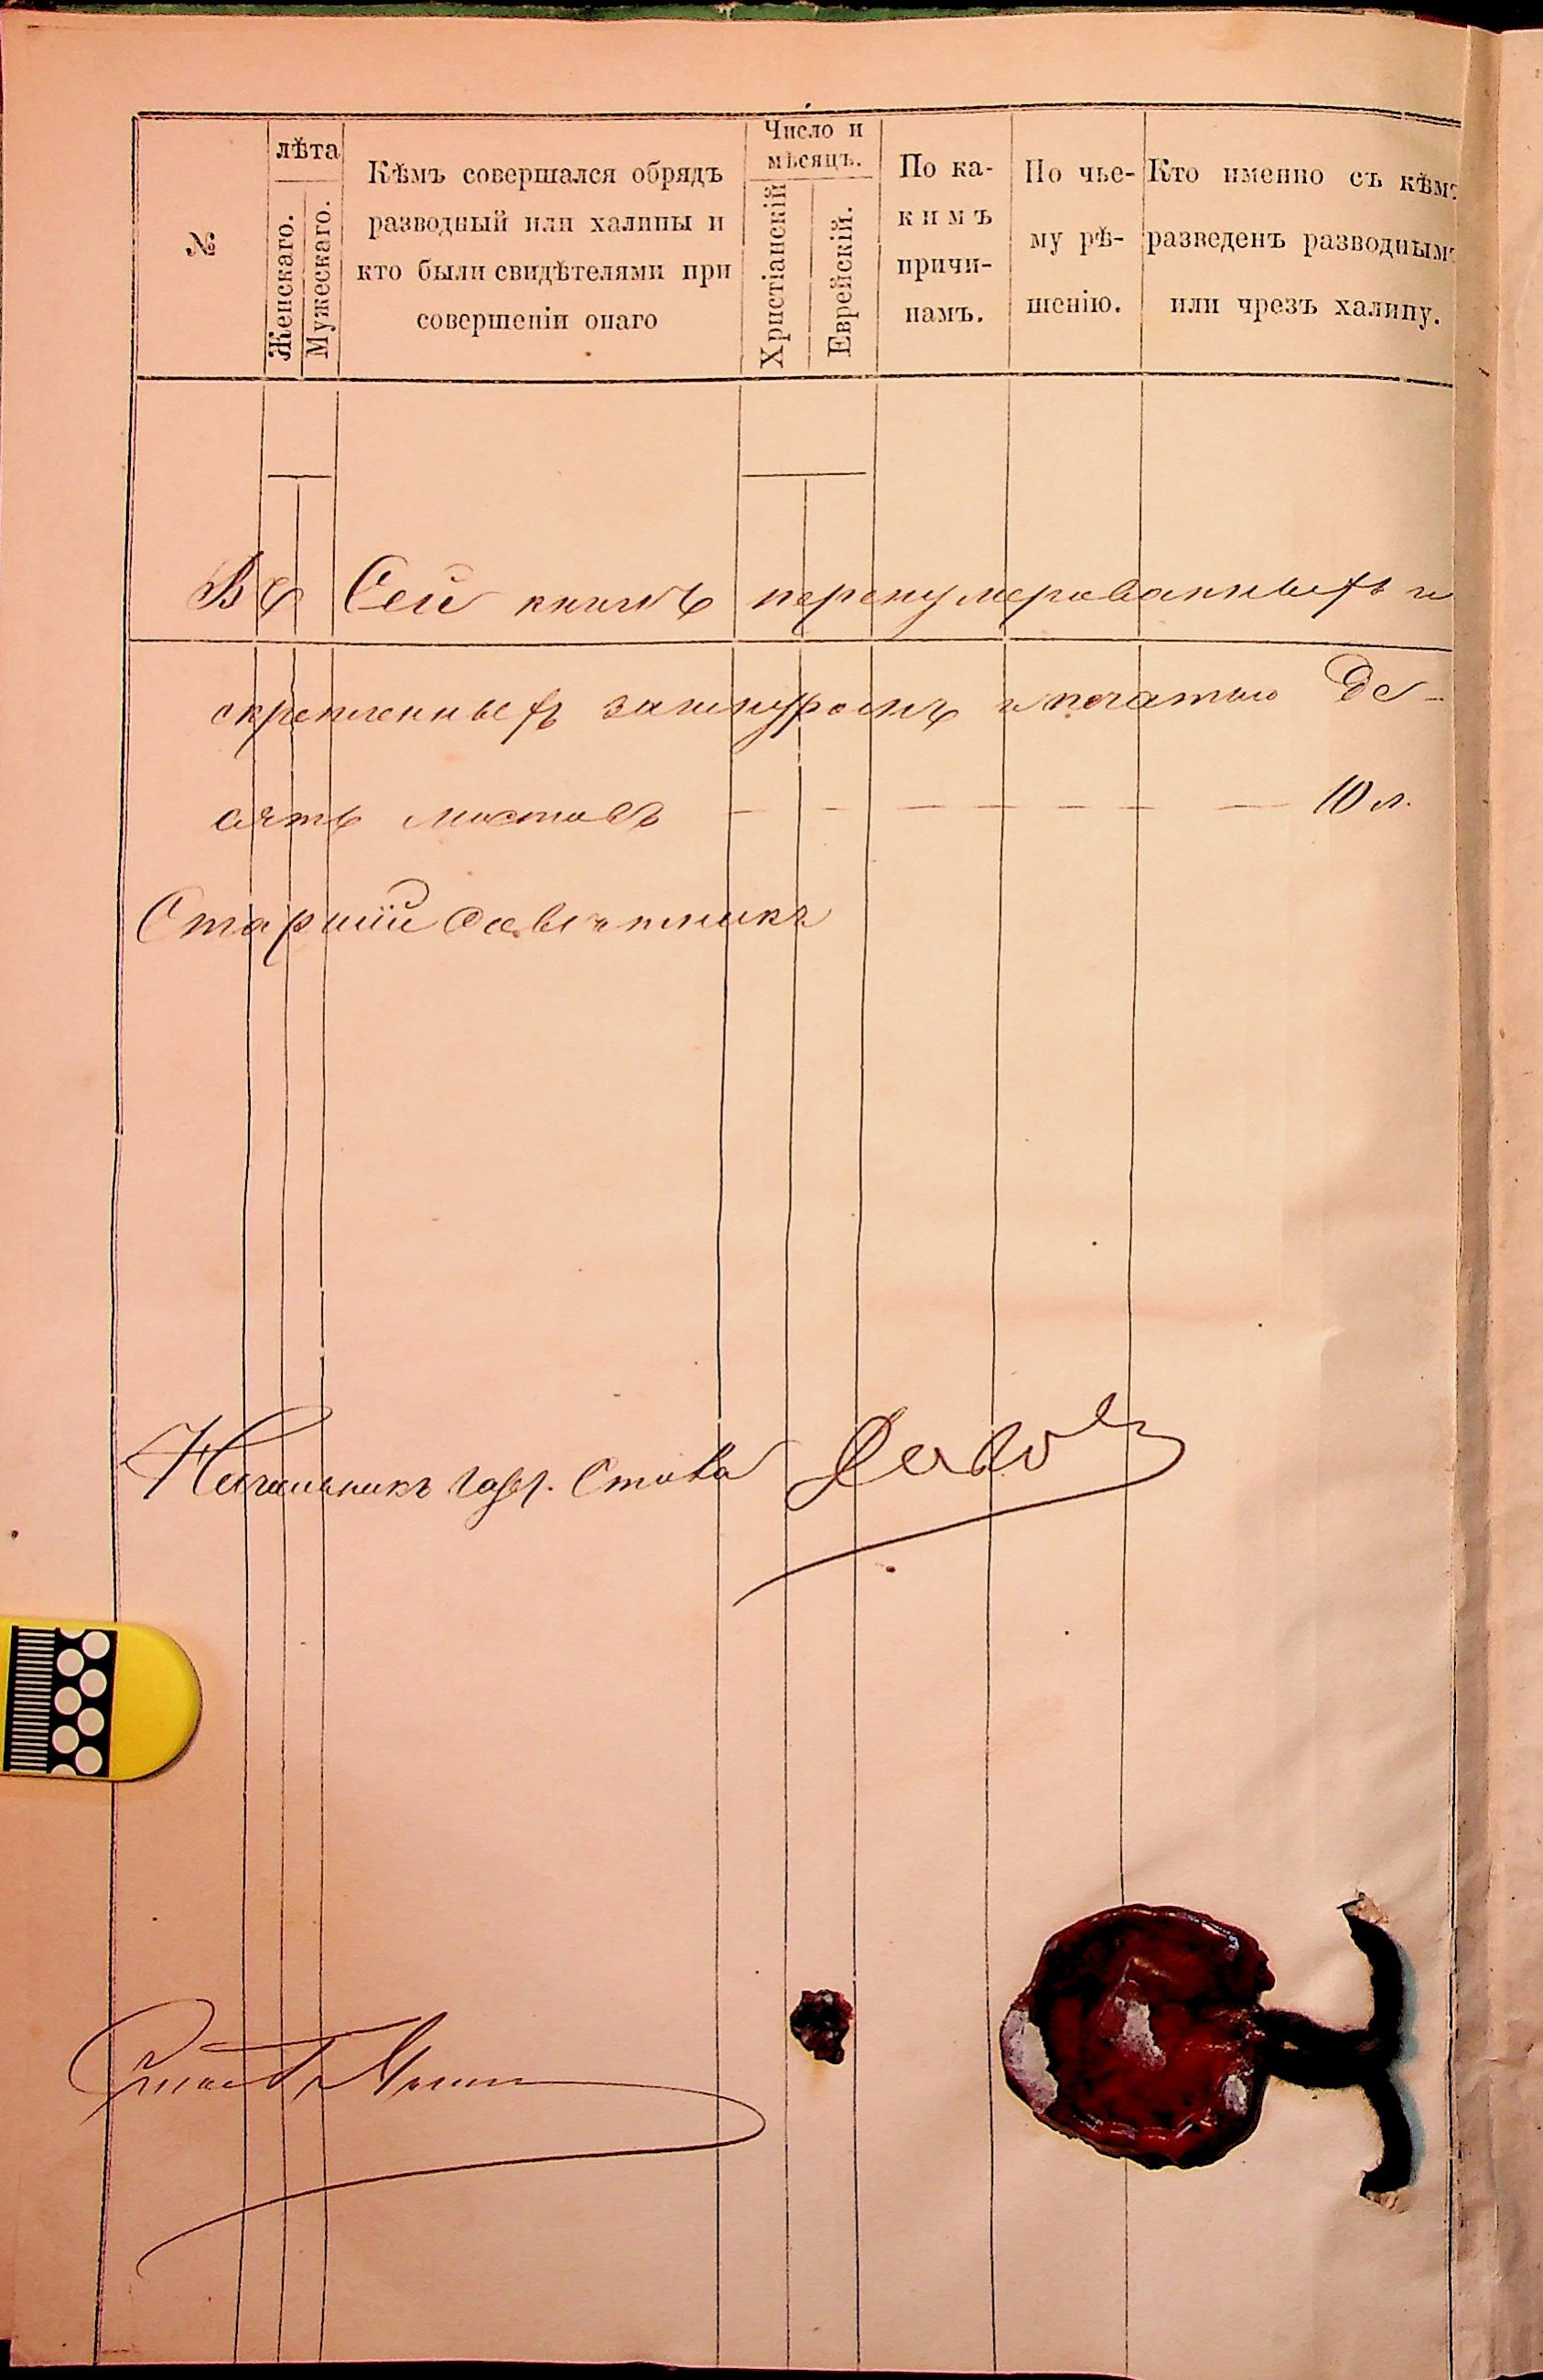 №
лѣта
Женскаго.
Мужескаго.
Кѣмъ совершался обрядъ
разводный или халицы и
кто были свидѣтелями при
совершеніи онаго
Число и
мѣсяцъ.
Христіанскій
Еврейскій.
По ка-
кимъ
причи-
намъ.
По чье-
му рѣ-
шенію.
Кто именно съ кѣмъ
разведенъ разводнымъ
или чрезъ халицу.
Въ Сей книгѣ перенумерованныхъ и
скрепленныхъ за шнуромъ и печатью Де-
сять листовъ — — — — — — 10 л.
Старшій Совѣтникъ
Начальникъ Стола